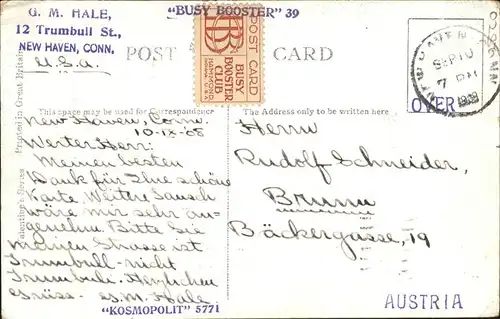 G. M. HALE, "BUSY BOOSTER" 39
12 Trumbull St.,
NEW HAVEN, CONN.
U.S.A.
POST CARD
POST CARD
BUSY
BOOSTER
CLUB
SEP 10
7 PM
OVER
This space may be used for Correspondence
The Address only to be written here
Valentine's Series
Printed in Great Britain
New Haven, Conn.
10-IX-08
Werter Herr:
Meinen besten
Dank für Ihre schöne
Karte. Weitre Tausch
wäre mir sehr an-
genehm. Bitte Sie
meinen Strasse ist
Trumbull - nicht
Trumbule. Herzlichen
Grüss - G. M. Hale
"KOSMOPOLIT" 5771
Herrn
Rudolf Schneider,
Brünn
Bäckergasse, 19
AUSTRIA